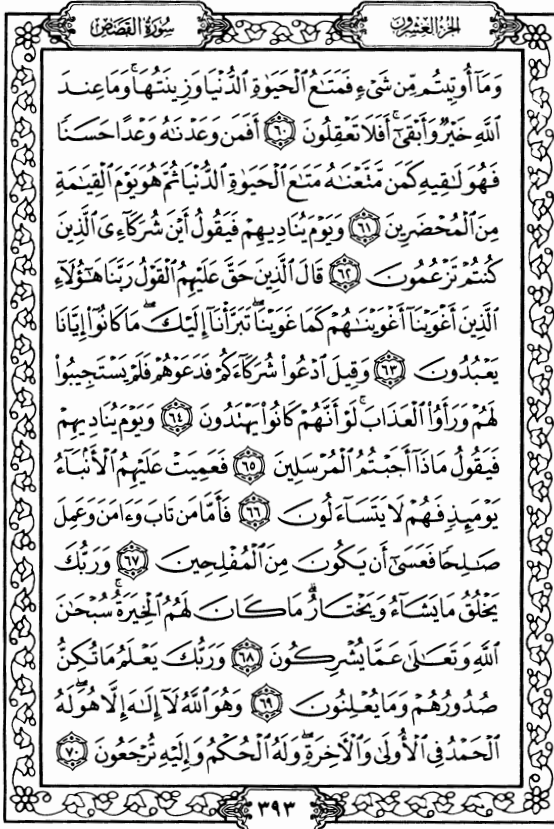 سُورَةُ القَصَصِ
الجُزْءُ العِشْرُونَ
وَمَآ أُوتِيتُم مِّن شَىْءٍ فَمَتَٰعُ ٱلْحَيَوٰةِ ٱلدُّنْيَا وَزِينَتُهَا ۚ وَمَا عِندَ
ٱللَّهِ خَيْرٌ وَأَبْقَىٰٓ ۚ أَفَلَا تَعْقِلُونَ ٦٠ أَفَمَن وَعَدْنَٰهُ وَعْدًا حَسَنًا
فَهُوَ لَٰقِيهِ كَمَن مَّتَّعْنَٰهُ مَتَٰعَ ٱلْحَيَوٰةِ ٱلدُّنْيَا ثُمَّ هُوَ يَوْمَ ٱلْقِيَٰمَةِ
مِنَ ٱلْمُحْضَرِينَ ٦١ وَيَوْمَ يُنَادِيهِمْ فَيَقُولُ أَيْنَ شُرَكَآءِىَ ٱلَّذِينَ
كُنتُمْ تَزْعُمُونَ ٦٢ قَالَ ٱلَّذِينَ حَقَّ عَلَيْهِمُ ٱلْقَوْلُ رَبَّنَا هَٰٓؤُلَآءِ
ٱلَّذِينَ أَغْوَيْنَآ أَغْوَيْنَٰهُمْ كَمَا غَوَيْنَا ۖ تَبَرَّأْنَآ إِلَيْكَ ۖ مَا كَانُوٓا۟ إِيَّانَا
يَعْبُدُونَ ٦٣ وَقِيلَ ٱدْعُوا۟ شُرَكَآءَكُمْ فَدَعَوْهُمْ فَلَمْ يَسْتَجِيبُوا۟
لَهُمْ وَرَأَوُا۟ ٱلْعَذَابَ ۚ لَوْ أَنَّهُمْ كَانُوا۟ يَهْتَدُونَ ٦٤ وَيَوْمَ يُنَادِيهِمْ
فَيَقُولُ مَاذَآ أَجَبْتُمُ ٱلْمُرْسَلِينَ ٦٥ فَعَمِيَتْ عَلَيْهِمُ ٱلْأَنۢبَآءُ
يَوْمَئِذٍ فَهُمْ لَا يَتَسَآءَلُونَ ٦٦ فَأَمَّا مَن تَابَ وَءَامَنَ وَعَمِلَ
صَٰلِحًا فَعَسَىٰٓ أَن يَكُونَ مِنَ ٱلْمُفْلِحِينَ ٦٧ وَرَبُّكَ
يَخْلُقُ مَا يَشَآءُ وَيَخْتَارُ ۗ مَا كَانَ لَهُمُ ٱلْخِيَرَةُ ۚ سُبْحَٰنَ
ٱللَّهِ وَتَعَٰلَىٰ عَمَّا يُشْرِكُونَ ٦٨ وَرَبُّكَ يَعْلَمُ مَا تُكِنُّ
صُدُورُهُمْ وَمَا يُعْلِنُونَ ٦٩ وَهُوَ ٱللَّهُ لَآ إِلَٰهَ إِلَّا هُوَ ۖ لَهُ
ٱلْحَمْدُ فِى ٱلْأُولَىٰ وَٱلْـَٔاخِرَةِ ۖ وَلَهُ ٱلْحُكْمُ وَإِلَيْهِ تُرْجَعُونَ ٧٠
٣٩٣